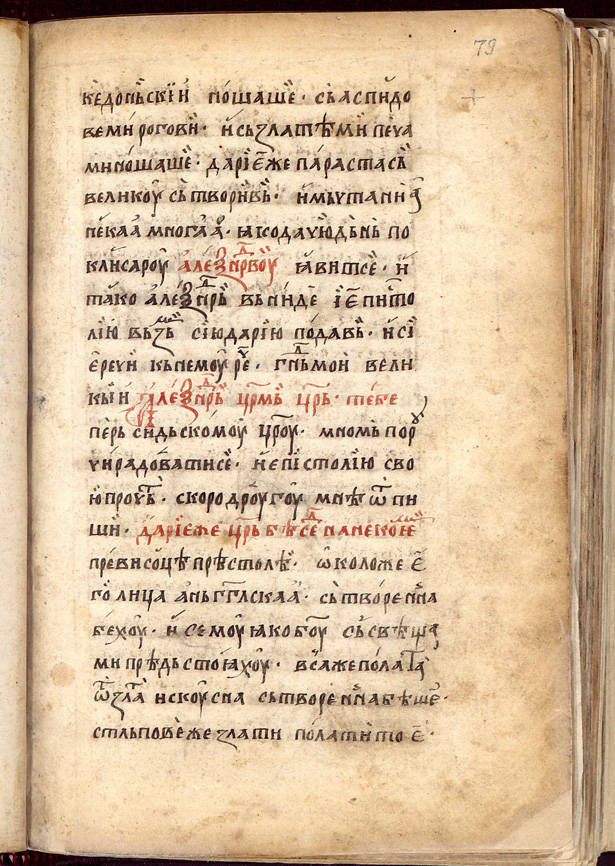 79
кедоньскїи ношаше · сьаспидо
веми рогови · и сьзлатѣми печа
ми ношаше · дарїе же парастась
великоу сьтворивь · и мьчтаниꙗ
нѣкаа многаа · ꙗкода чюдьнь по
клисароу алеѯндрвоу ꙗвитсе · и
тако алеѯндрь вьниде и еписто
лїю вьзьмь сїю дарїю подавь · и сї
е речи кьнемоу рече · гднь мои вели
кыи алеѯндрь црмь црь · тебе
перьсидьскомоу цроу · мномь пороу
чи радоватисе · и епистолїю сво
ю проуть · скоро дроугоу мнѣ ѿпи
ши · дарїе же црь бѣ седе на некоемь
превисоце прѣстоле · ѡколо же е
го лица аньгглскаа · сьтворенна
бехоу · и семоу ꙗко богоу сьсвѣща
ми прѣдьстоꙗхоу · вса же полата
ѿ злата искоусна сьтворенна бѣше ·
стльпове же злати полати тое ·